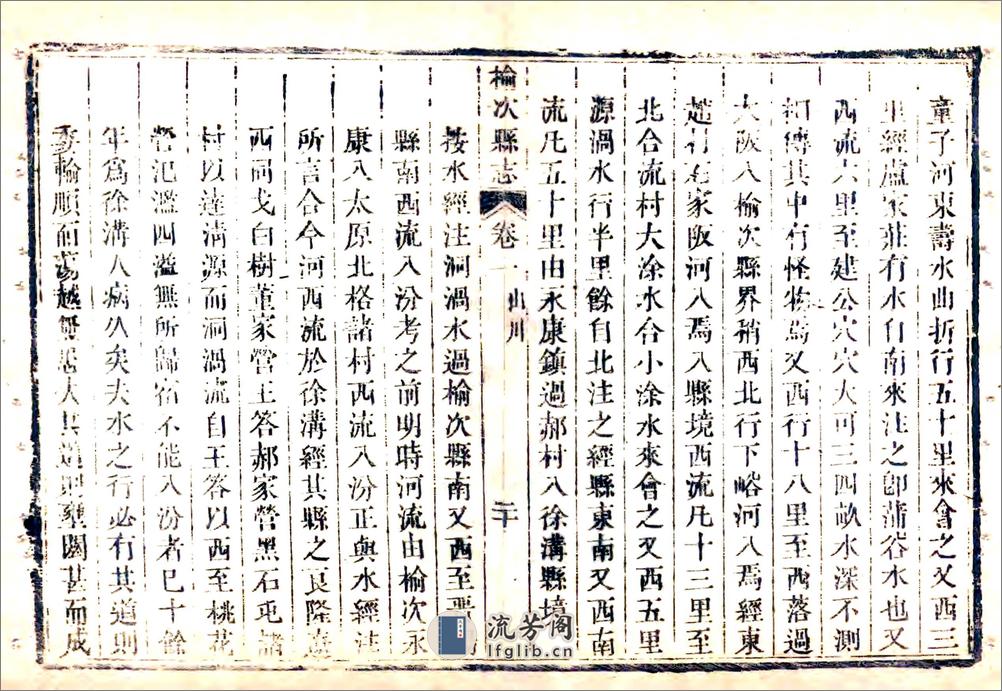 童子河東壽水曲折行五十里來會之又西三
里經盧家莊有水自南來注之卽蒲谷水也又
西流六里至建公穴穴大可三四畝水深不測
相傳其中有怪物焉又西行十八里至西落過
大阪入榆次縣界稍西北行下峪河入焉經東
趙村左家阪河入焉入縣境西流凡十三里至
北合流村大涂水合小涂水來會之又西五里
源渦水行半里餘自北注之經縣東南又西南
流凡五十里由永康鎮過郝村入徐溝縣境
榆次縣志 卷一 山川 二十
按水經注洞渦水過榆次縣南又西至晋
縣南西流入汾考之前明時河流由榆次永
康入太原北格諸村西流入汾正與水經注
所言合今河西流於徐溝經其縣之良隆
西同戈白樹董家營王答郝家營黑石屯諸
村以達淸源而洞渦流自王答以西至桃花
營氾濫四溢無所歸宿不能入汾者已十餘
年爲徐溝人病久矣夫水之行必有其道則
委輸順而蕩越無居人其道則壅閼甚而成
流芳阁
lfglib.cn